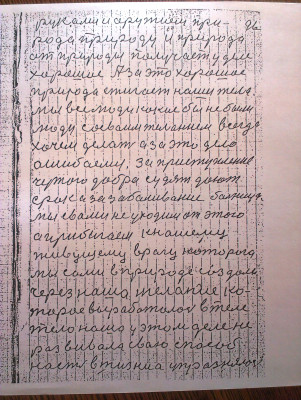 руками и оружием при- 96
рода природу и природа
от природы получает удел
хорошое А за это хорошое
природа стигает наши тела
мы все люди какие бы не были
люди со своим желанием всегда
хочем делат а за это дело
ошибаемся, за приступление
чужого добра судят дают
срок а за заболивание
мы с вами не уходим от этого
а прибигаем к нашему
живущему врагу которого
мы сами в природе создали
через наша желание ко-
торое выработалос в теле
тело наша у этом деле не
развивала сваю способ
ност в жизни